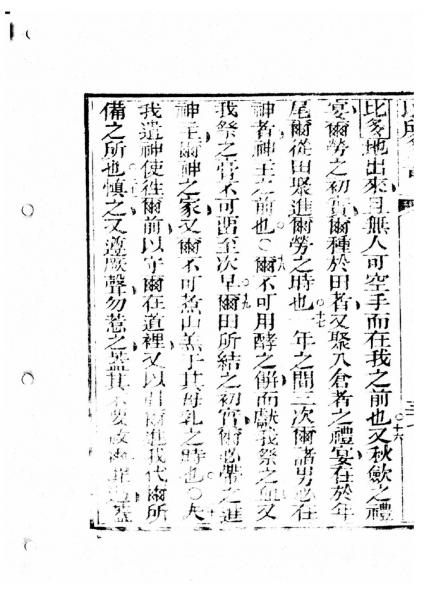 比多地出來且無人可空手而在我之前也又秋斂之禮
宴爾勞之初實爾種於田者又聚入倉者之禮宴在於年
尾爾從田聚進爾勞之時也一年之間三次爾諸男必在
神者神主之前也○爾不可用酵之餅而獻我祭之血又
我祭之膏不可留至次早爾田所結之初實爾必帶之進
神主爾神之家又爾不可煮山羔于其母乳之時也○夫
我遣神使徃爾前以守爾在道裡又以引爾進我代爾所
備之所也慎之又遵厥聲勿惹之蓋其不要赦爾罪過蓋